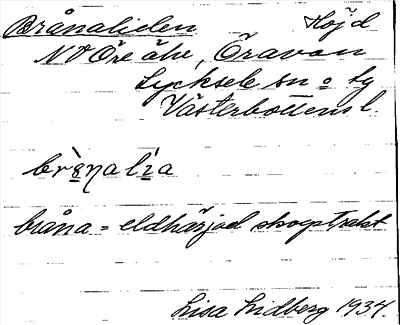 Brånaliden Höjd
NV Öre älv, Öravan
Lycksele sn o lg
Västerbottens l.
brånalia
bråna = eldhärjad skogstrakt
Lisa Lidberg 1934.